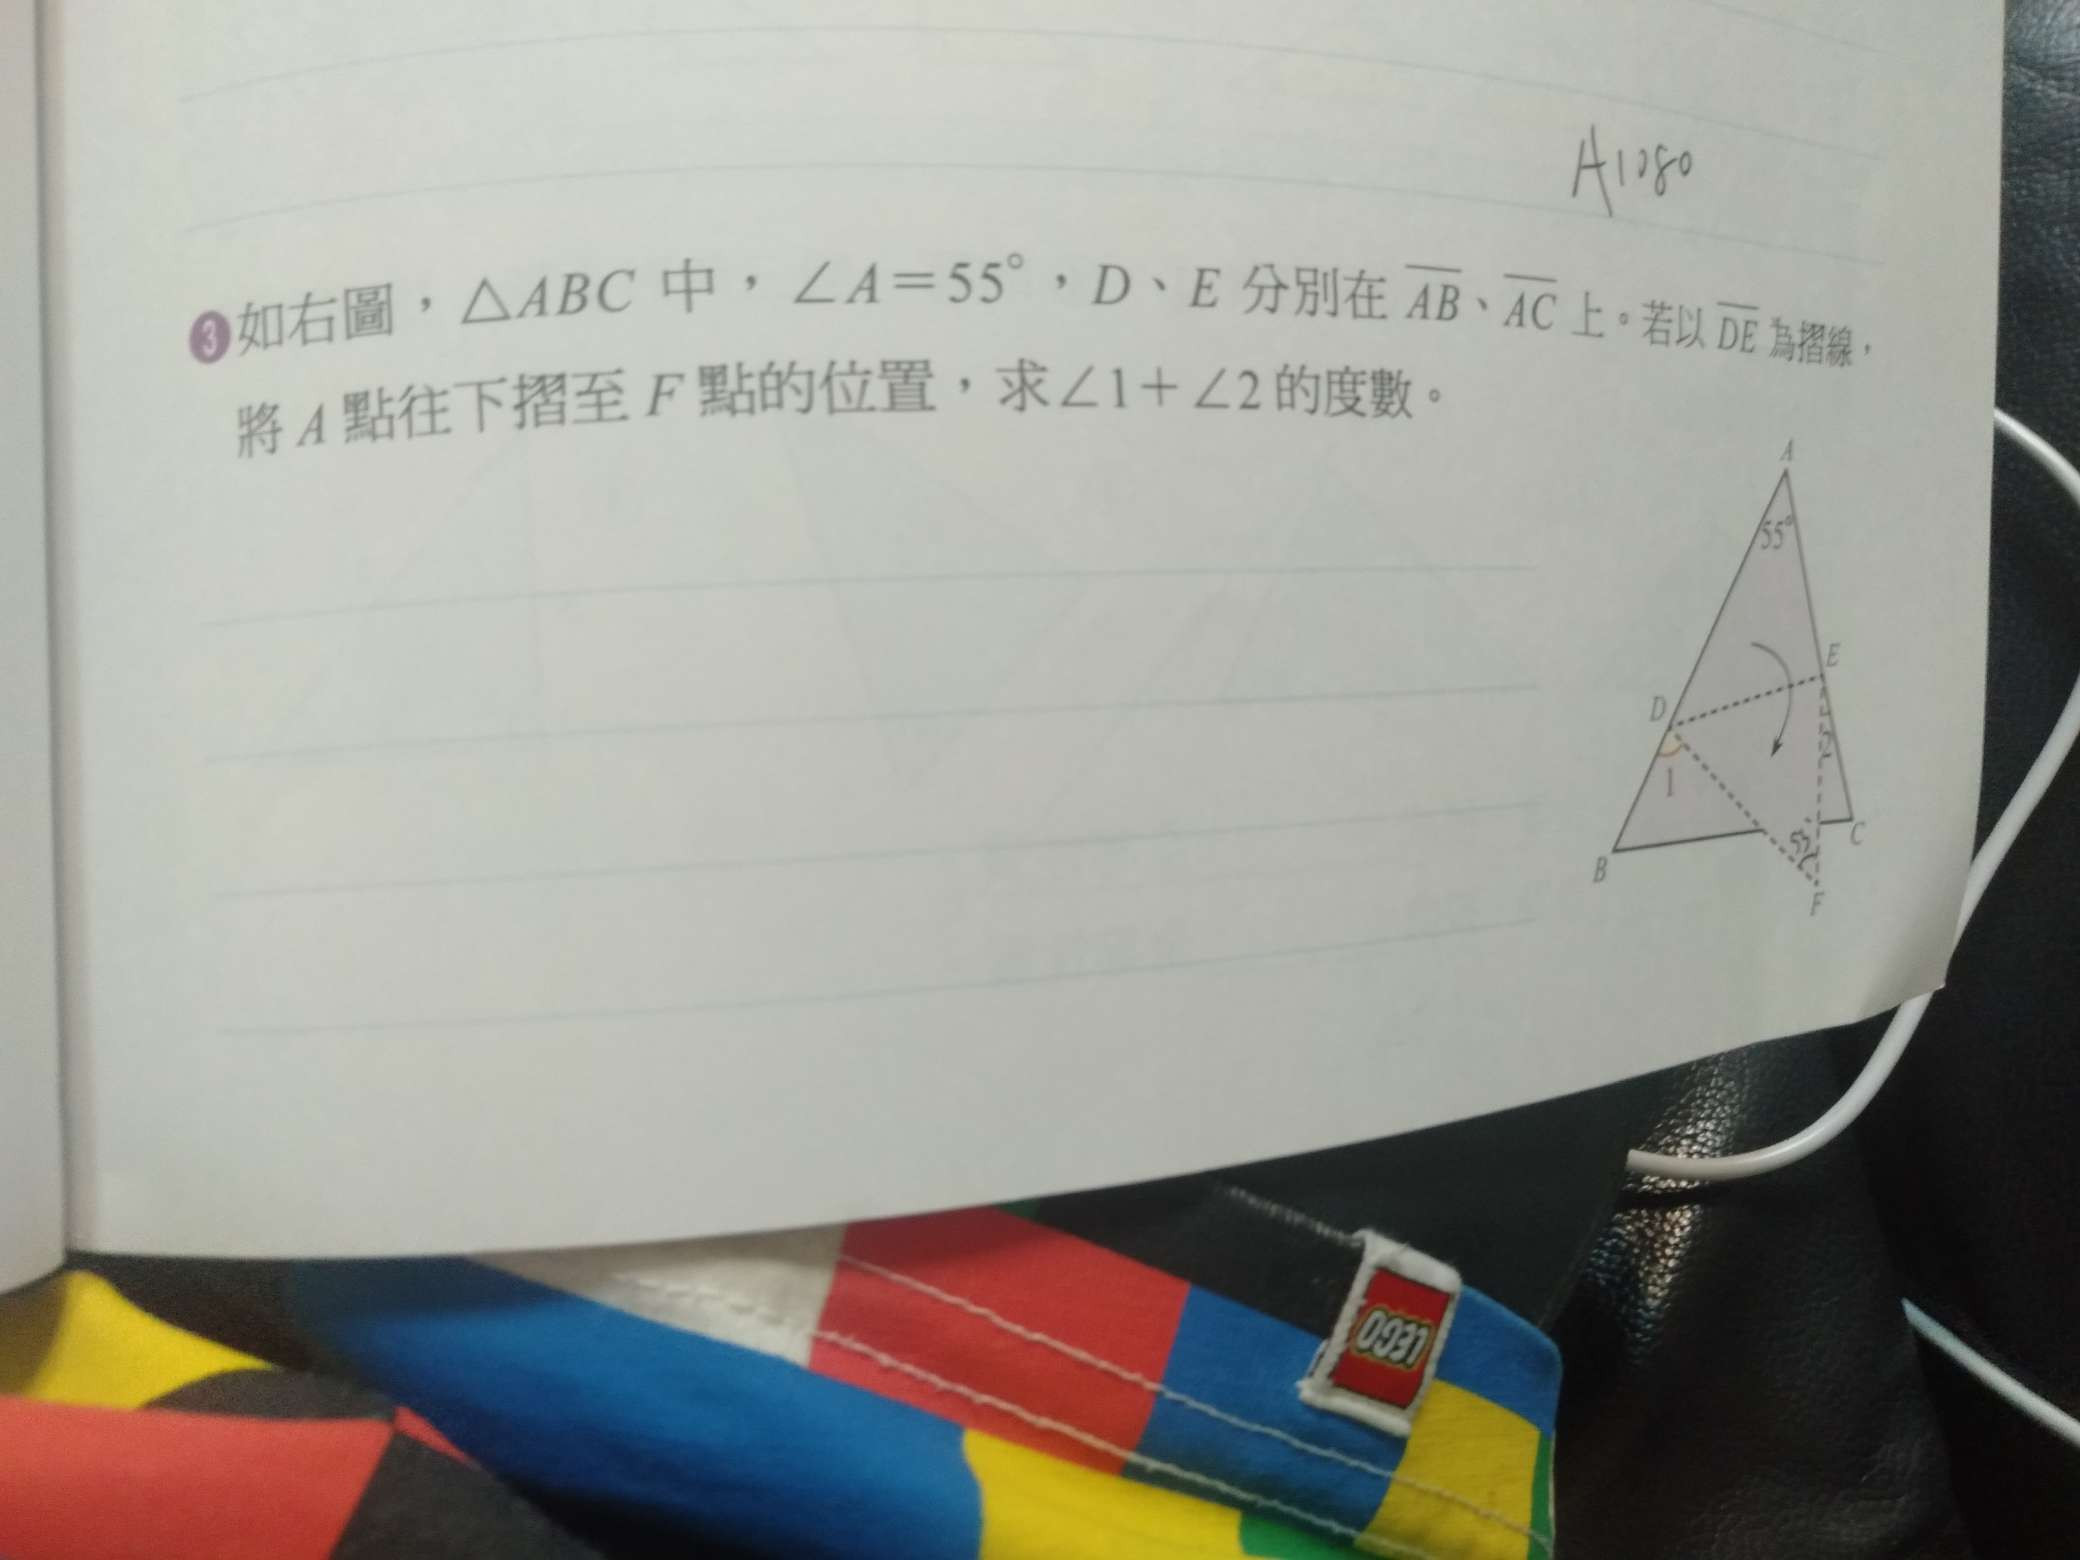 A1080
3如右圖，△ABC 中，∠A＝55°，D、E 分別在 AB、AC 上。若以 DE 為摺線，
將 A 點往下摺至 F 點的位置，求∠1＋∠2 的度數。
A
55°
E
D
2
1
55°
B
C
F
LEGO